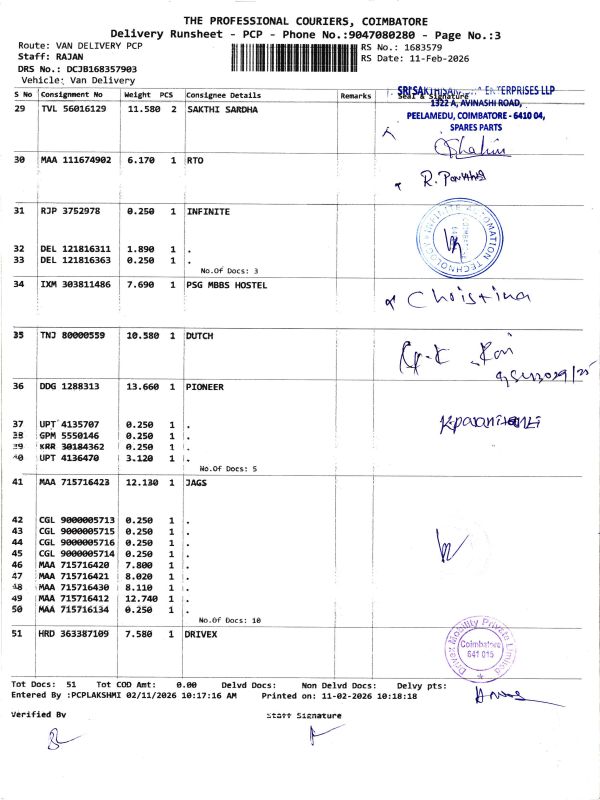 THE PROFESSIONAL COURIERS, COIMBATORE
Delivery Runsheet - PCP - Phone No.:9047080280 - Page No.:3
Route: VAN DELIVERY PCP RS No.: 1683579
Staff: RAJAN RS Date: 11-Feb-2026
DRS No.: DCJB168357903
Vehicle: Van Delivery
S No Consignment No Weight PCS Consignee Details Remarks Seal & Signature
ENTERPRISES LLP
29 TVL 56016129 11.580 2 SAKTHI SARDHA
1322 A, AVINASHI ROAD,
PEELAMEDU, COIMBATORE - 6410 04,
SPARES PARTS
30 MAA 111674902 6.170 1 RTO
31 RJP 3752978 0.250 1 INFINITE
INFINITE AUTOMATION TECHNOLOGY
32 DEL 121816311 1.890 1 .
33 DEL 121816363 0.250 1 .
No.Of Docs: 3
34 IXM 303811486 7.690 1 PSG MBBS HOSTEL
Christina
35 TNJ 80000559 10.580 1 DUTCH
36 DDG 1288313 13.660 1 PIONEER
37 UPT 4135707 0.250 1 .
38 GPM 5550146 0.250 1 .
39 KRR 30184362 0.250 1 .
40 UPT 4136470 3.120 1 .
No.Of Docs: 5
41 MAA 715716423 12.130 1 JAGS
42 CGL 9000005713 0.250 1 .
43 CGL 9000005715 0.250 1 .
44 CGL 9000005716 0.250 1 .
45 CGL 9000005714 0.250 1 .
46 MAA 715716420 7.800 1 .
47 MAA 715716421 8.020 1 .
48 MAA 715716430 8.110 1 .
49 MAA 715716412 12.740 1 .
50 MAA 715716134 0.250 1 .
No.Of Docs: 10
51 HRD 363387109 7.580 1 DRIVEX
Drivex Mobility Private Limited
Coimbatore
641 015
Tot Docs: 51 Tot COD Amt: 0.00 Delvd Docs: Non Delvd Docs: Delvy pts:
Entered By :PCPLAKSHMI 02/11/2026 10:17:16 AM Printed on: 11-02-2026 10:18:18
Verified By Staff Signature